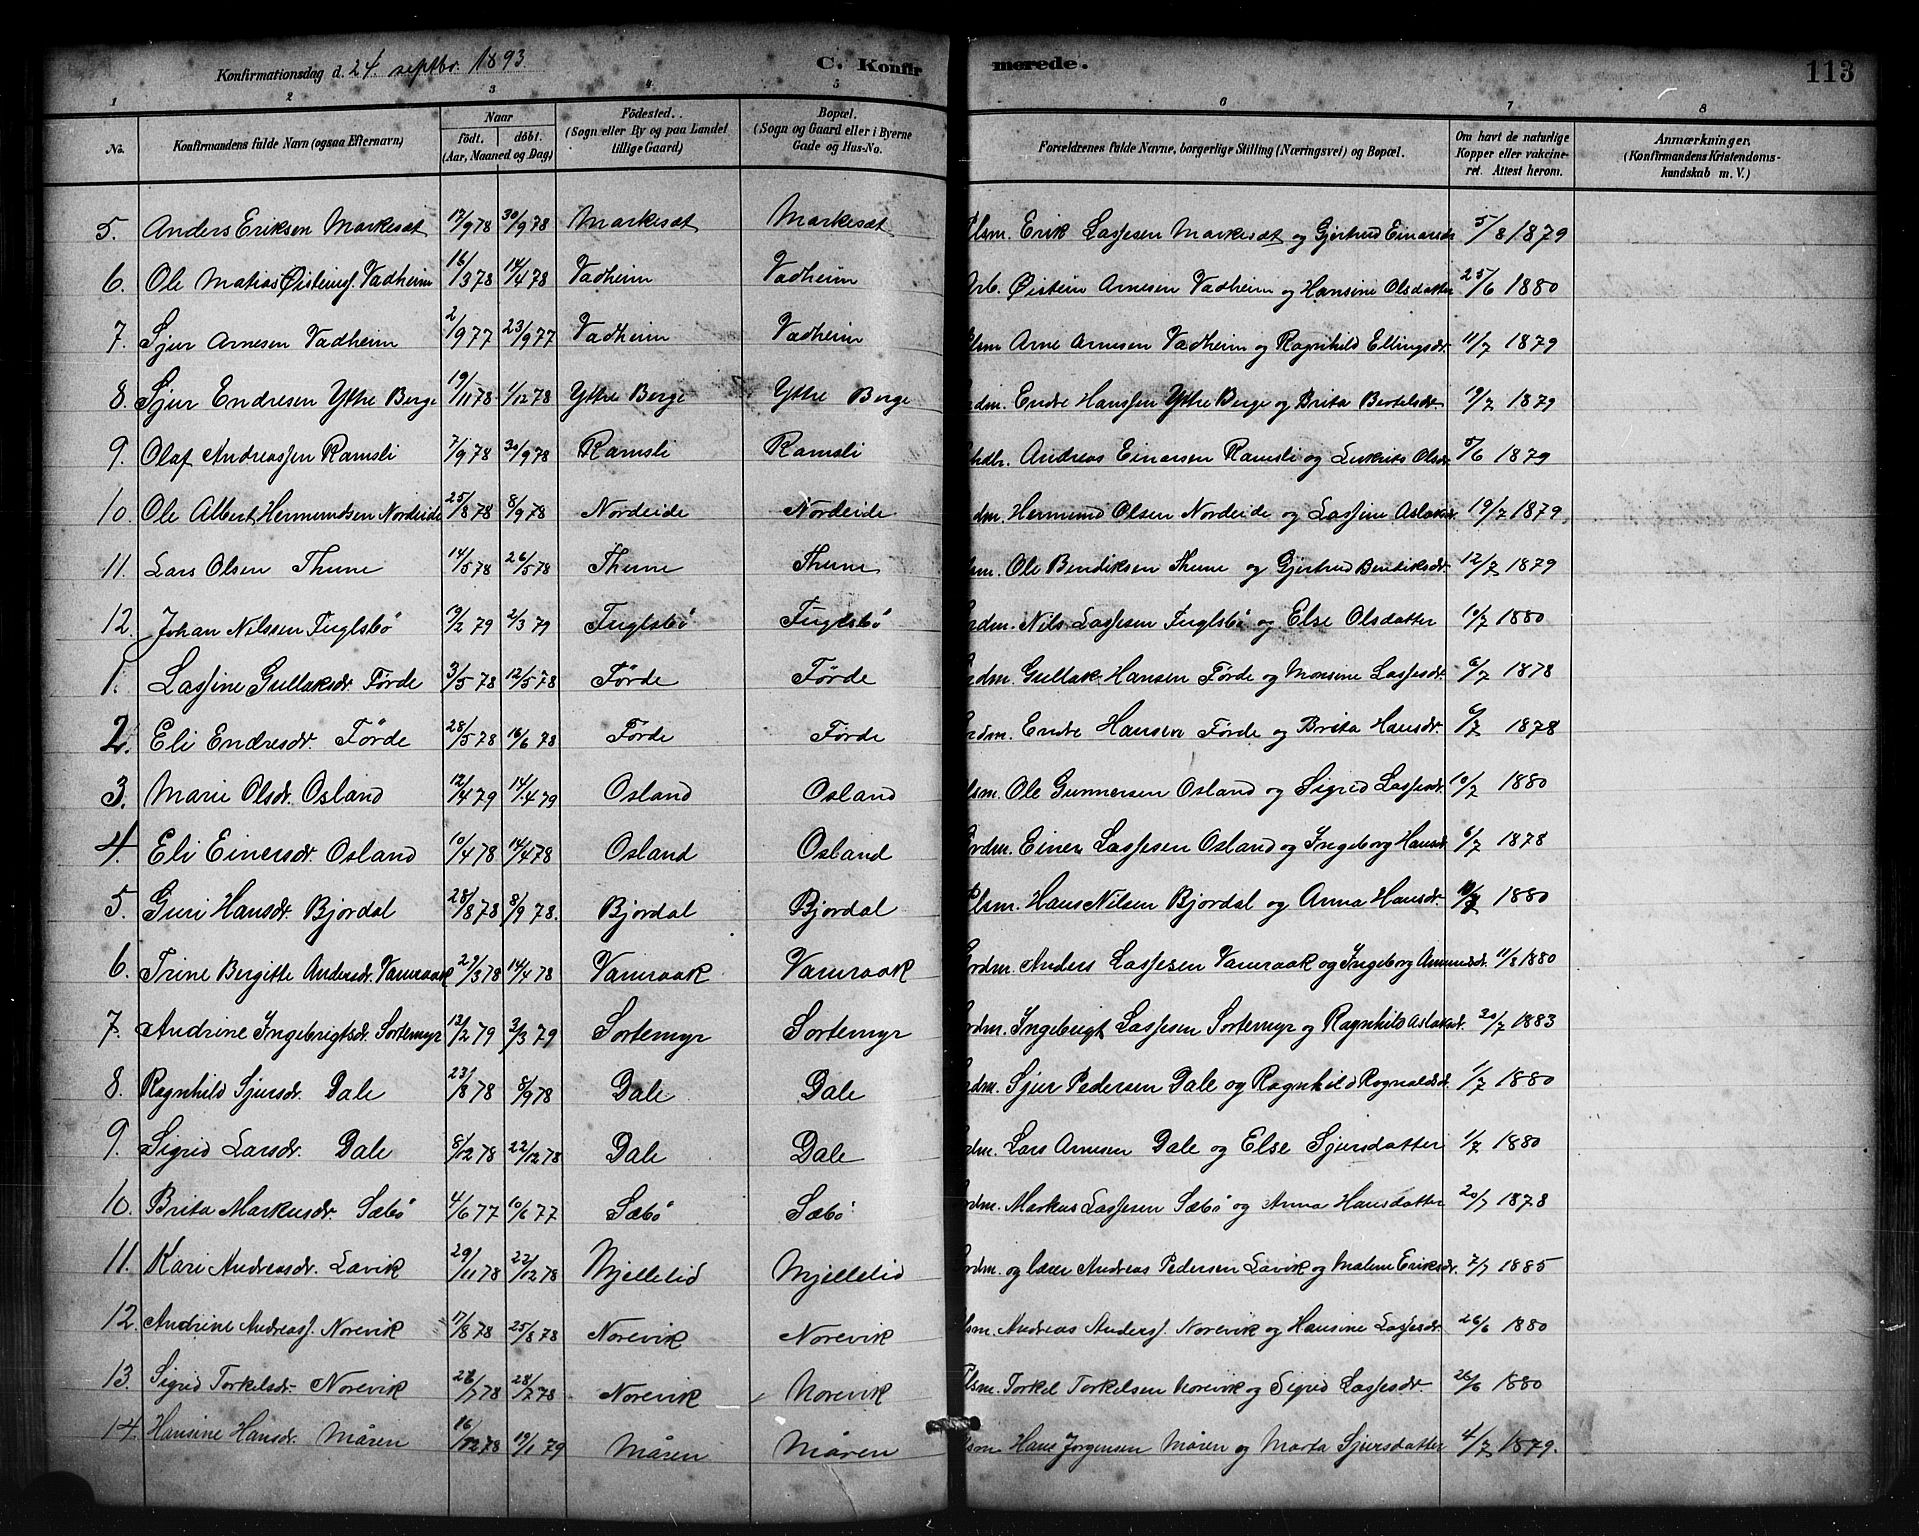 Konfirmationsdag d. 24. septbr. 1893 C. Konfir merede. 113
1 2 3 4. 5 6 7 8
No. Konfirmandens fulde Navn (ogsaa Efternavn) Naar födt. döbt. (Aar, Maaned og Dag) Födested.. (Sogn eller By og paa Landet tillige Gaard) Bopæl. (Sogn og Gaard eller i Byerne Gade og Hus-No. Forældrenes fulde Navne, borgerlige Stilling (Næringsvei) og Bopæl. Om havt de naturlige Kopper eller vakcine- ret. Attest herom. Anmærkninger, (Konfirmandens Kristendoms- kundskab m. V.)
5. Anders Eriksen Markesæt 17/9 78 30/9 78 Markesæt Markesæt Plsm. Erik Lassesen Markesæt og Gjertrud Einarsdr 5/8 1879
6. Ole Matias Øistensf. Vadheim 16/3 78 14/4 78 Vadheim Vadheim Arb. Øistein Arnesen Vadheim og Hansine Olsdatter 25/6 1880
7. Sjur Arnesen Vadheim 2/9 77 23/9 77 Vadheim Vadheim lsm Arne Arnesen Vadheim og Ragnhild Ellingsdr. 11/7 1879
8. Sjur Endresen Ytre Berge 19/11 78. 1/12 78 Ytre Berge Ytre Berge rdm. Endre Hanssen Ytre Berge og Brita Bertelsdr. 9/7 1879
9. Olaf Andreassen Ramsli 7/9 78 30/9 78 Ramsli Ramsli hdlr. Andreas Einarsen Ramsli og Lukrits Olsdr 5/6 1879
10. Ole Albert Hermundsen Nordeide 25/8 78 8/9 78 Nordeide Nordeide dm. Hermund Olsen Nordeide og Lassine Aslaksdr. 19/7 1879
11. Lars Olsen Thune 14/5 78 26/5 78 Thune Thune lsm. Ole Bendiksen Thune og Gjertrud Bendiksdr. 12/7 1879
12. Johan Nilssen Fuglsbö 19/2 79 2/3 79 Fuglsbö Fuglsbö rdm. Nils Lassesen Fuglsbö og Else Olsdatter 10/7 1880
1. Lassine Gullaksdr. Førde 3/5 78 12/5 78 Førde Førde rdm. Gullak Hansen Førde og Monsine Lassesdr. 6/7 1878
2. Eli Endresdr. Førde 28/5 78 16/6 78 Førde Førde rdm. Endre Hansen Førde og Brita Hansdr. 6/7 1878
3. Marie Olsdr. Osland 12/4 79 14/4 79 Osland Osland lsm. Ole Gunnersen Osland og Sigrid Lassesdr. 10/7 1880
4. Eli Einersdr. Osland 10/4 78 14/4 78 Osland Osland Grdm. Einer Lassesen Osland og Ingeborg Hansdr 6/7 1878
5. Guri Hansdr. Bjordal 28/8 78 8/9 78. Bjordal Bjordal Plsm. Hans Nilsen Bjordal og Anna Hansdr. 1880
6. Trine Bergitte Andersdr. Vamraak 27/3 78 14/4 78 Vamraak Vamraak Grdm. Anders Lassesen Vamraak og Ingeborg Amundsdr. 11/8 1880
7. Andrine Ingebrigtsdr. Sortemyr 13/2 79 3/3 79 Sortemyr Sortemyr rdm. Ingebrigt Lassesen Sortemyr og Ragnhild Aslaksdr. 20/7 1883
8. Ragnhild Sjursdr. Dale 23/8 78 8/9 78 Dale Dale rdm. Sjur Pedersen Dale og Ragnhild Ragnaldsdr. 1/7 1880
9. Sigrid Larsdr. Dale 8/12 78 22/12 78 Dale Dale rdm. Lars Arnesen Dale og Else Sjursdatter 1/7 1880
10. Brita Markusdr. Sæbö 4/6 77 10/6 77 Sæbö Sæbö rdm. Markus Lassesen Sæbö og Anna Hansdatter 20/7 1878
11. Kari Andreasdr. Lavik 29/11 78 22/12 78 Mjellelid Mjellelid Grdm. og lærer Andreas Pedersen Lavik og Malene Eriksdr. 7/7 1885
12. Andrine Andreasf. Norevik 17/8 78 25/8 78 Norevik Norevik lsm. Andreas Andersf. Norevik og Hansine Lassesdr. 26/6 1880
13. Sigrid Torkelsdr. Norevik 28/7 78 Norevik Norevik Plsm. Torkel Torkelsen Norevik og Sigrid Lassesdr. 26/6 1880
14. Hansine Hansdr. Måren 16/12 78 19/1 79 Måren Måren lsm Hans Jørgensen Måren og Marta Sjursdatter 4/7 1879.